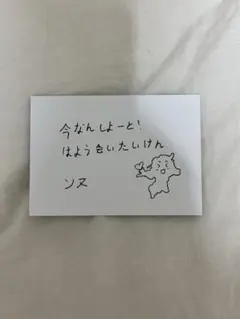 今なんしよーと!
はようきいたいけん
ソヌ